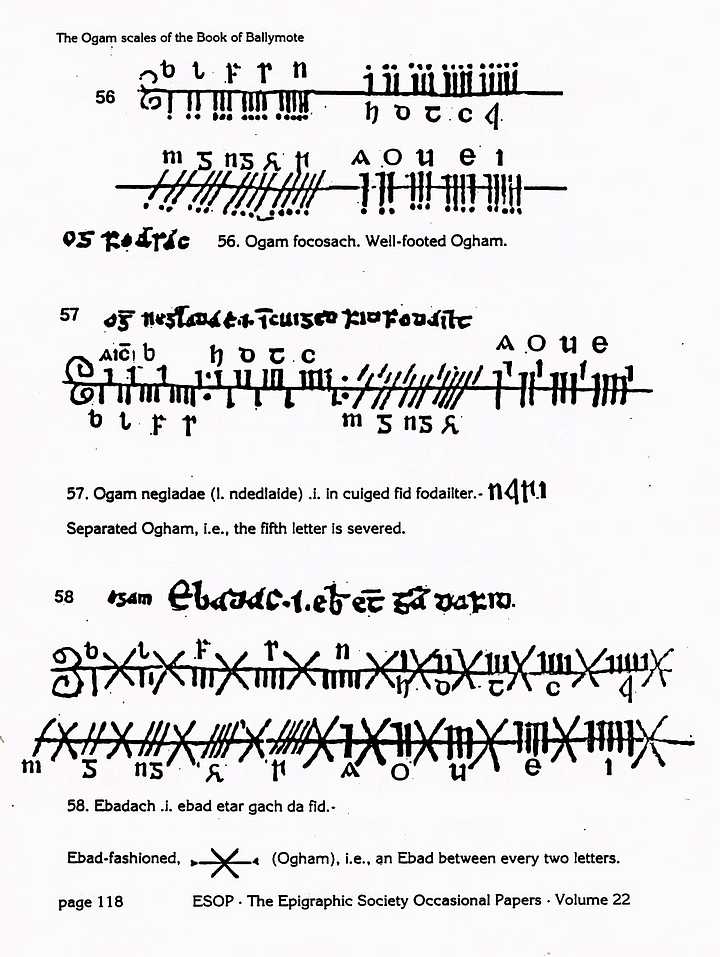 The Ogam scales of the Book of Ballymote
b l f r n
56
h d t c q
m g ng z r
A O u e i
56. Ogam focosach. Well-footed Ogham.
57
A O u e
b h d t c
b l f r m g ng z
57. Ogam negladae (l. ndedlaide) .i. in cuiged fid fodailter.-
Separated Ogham, i.e., the fifth letter is severed.
58
b l f r n
h d t c q
m g ng z r A O u e i
58. Ebadach .i. ebad etar gach da fid.-
Ebad-fashioned, (Ogham), i.e., an Ebad between every two letters.
page 118 ESOP · The Epigraphic Society Occasional Papers · Volume 22